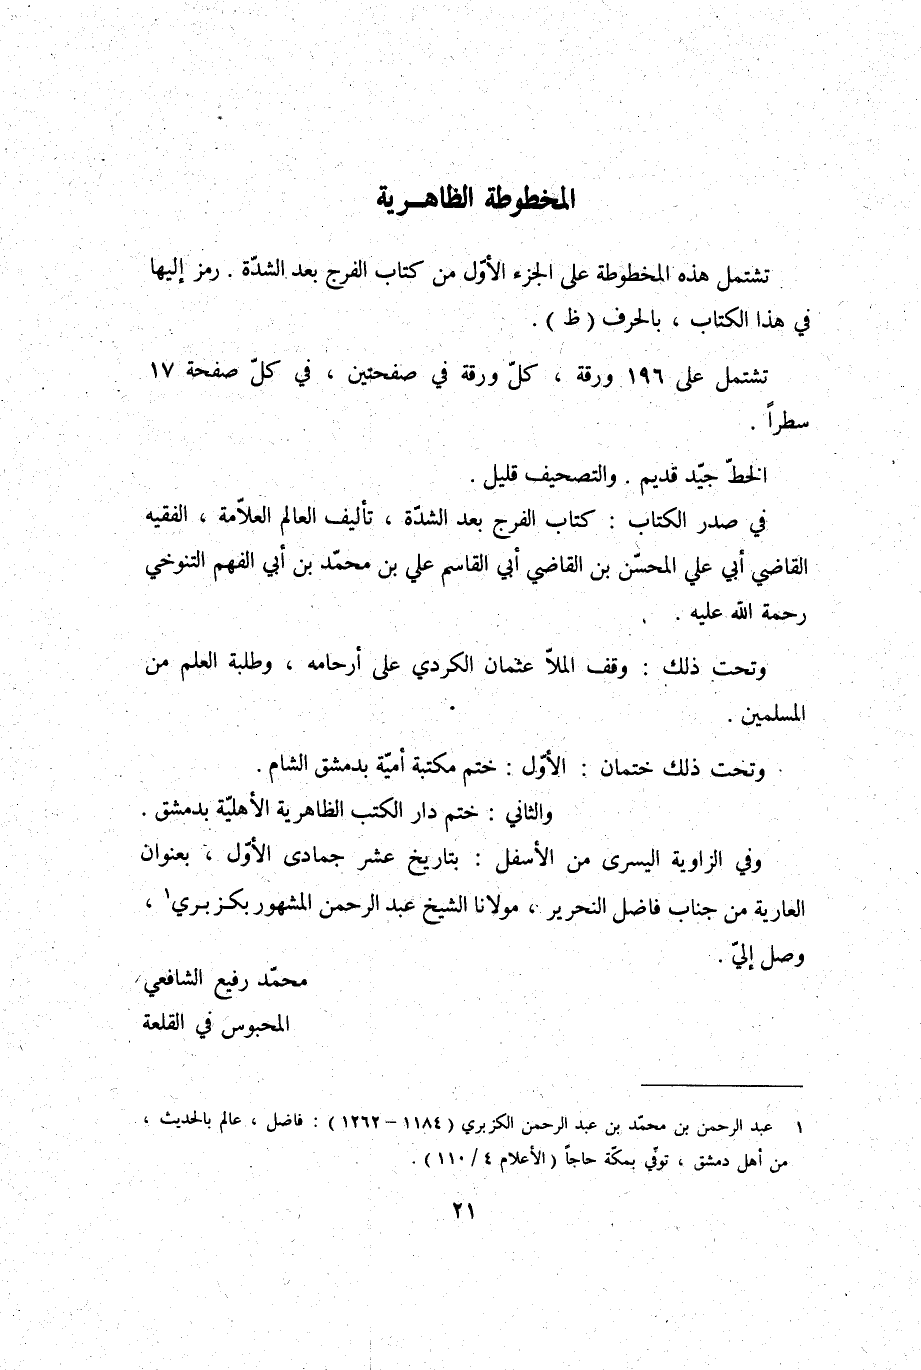 المخطوطة الظاهـرية
تشتمل هذه المخطوطة على الجزء الأوّل من كتاب الفرج بعد الشدّة . رمز إليها
في هذا الكتاب ، بالحرف ( ظ ) .
تشتمل على ١٩٦ ورقة ، كلّ ورقة في صفحتين ، في كلّ صفحة ١٧
سطراً .
الخطّ جيّد قديم . والتصحيف قليل .
في صدر الكتاب : كتاب الفرج بعد الشدّة ، تأليف العالم العلاّمة ، الفقيه
القاضي أبي علي المحسّن بن القاضي أبي القاسم علي بن محمّد بن أبي الفهم التنوخي
رحمة الله عليه .
وتحت ذلك : وقف الملاّ عثمان الكردي على أرحامه ، وطلبة العلم من
المسلمين .
وتحت ذلك ختمان : الأوّل : ختم مكتبة أميّة بدمشق الشام .
والثاني : ختم دار الكتب الظاهرية الأهليّة بدمشق .
وفي الزاوية اليسرى من الأسفل : بتاريخ عشر جمادى الأوّل ، بعنوان
العارية من جناب فاضل النحرير ، مولانا الشيخ عبد الرحمن المشهور بكزبري١ ،
وصل إليّ .
محمّد رفيع الشافعي
المحبوس في القلعة
١ عبد الرحمن بن محمّد بن عبد الرحمن الكزبري ( ١١٨٤ – ١٢٦٢ ) : فاضل ، عالم بالحديث ،
من أهل دمشق ، توفّي بمكّة حاجاً ( الأعلام ٤ / ١١٠ ) .
٢١